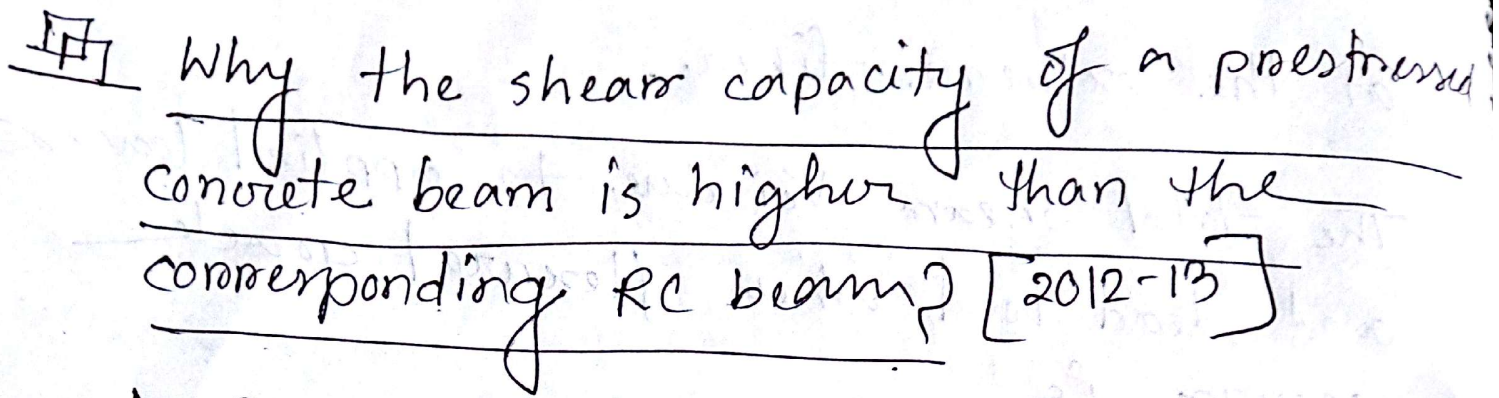 Why the shear capacity of a prestressed
concrete beam is higher than the
corresponding RC beam? [2012-13]